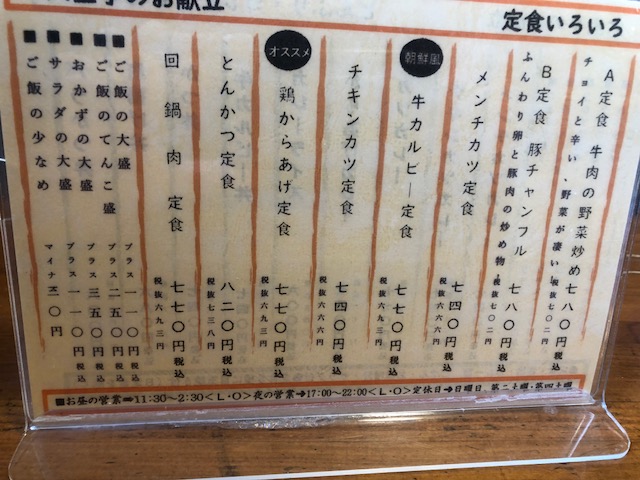 のお献立
定食いろいろ
A定食 牛肉の野菜炒め 七八〇円税込
チョイと辛い、野菜が凄い 税抜七〇二円
B定食 豚チャンフル 七八〇円税込
ふんわり卵と豚肉の炒め物 税抜七〇二円
メンチカツ定食 七四〇円税込
税抜六六六円
朝鮮風
牛カルビー定食 七七〇円税込
税抜六九三円
チキンカツ定食 七四〇円税込
税抜六六六円
オススメ
鶏からあげ定食 七七〇円税込
税抜六九三円
とんかつ定食 八二〇円税込
税抜七三八円
回鍋肉定食 七七〇円税込
税抜六九三円
■ご飯の大盛 プラス一一〇円税込
■ご飯のてんこ盛 プラス二五〇円税込
■おかずの大盛 プラス三五〇円税込
■サラダの大盛 プラス一一〇円税込
■ご飯の少なめ マイナ三〇円
■お昼の営業➡11:30〜2:30<L・O>夜の営業➡17:00〜22:00<L・O>定休日➡日曜日 第二土曜・第四土曜